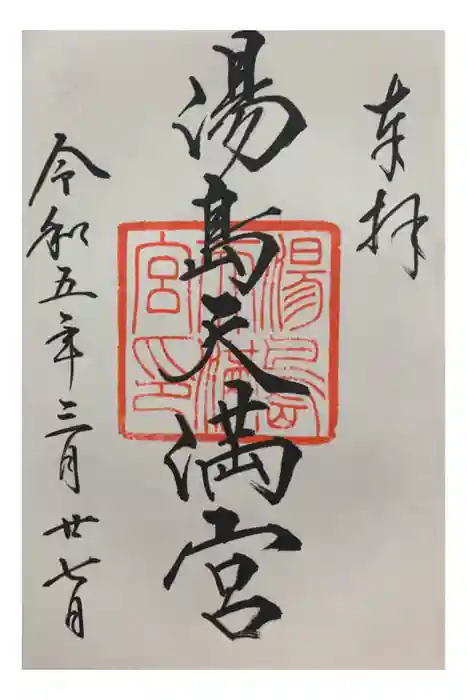 奉拝
湯島天満宮
湯島
天満
宮印
令和五年三月廿七日